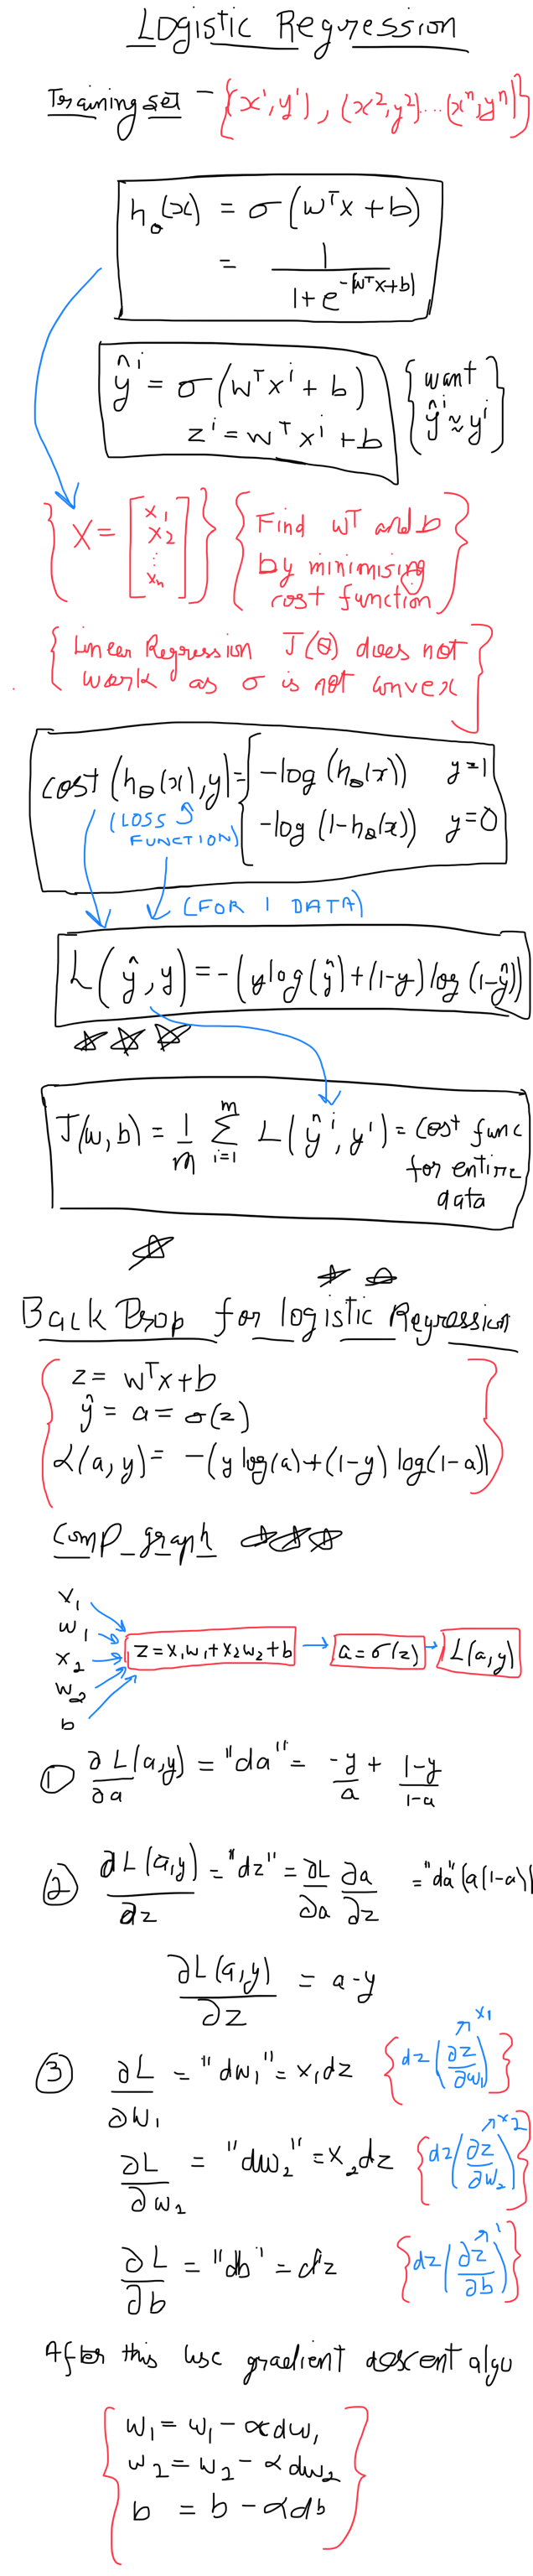 Logistic Regression
Training set - {(x¹,y¹), (x²,y²)...(xⁿ,yⁿ)}
h_θ(x) = σ(wᵀx + b)
= 1 / (1 + e^-(wᵀx+b))
ŷⁱ = σ(wᵀxⁱ + b)
zⁱ = wᵀxⁱ + b
{want
ŷⁱ ≈ yⁱ}
{X = [x₁ x₂ ⋮ xₙ]}
{Find wᵀ and b
by minimising
cost function}
{Linear Regression J(θ) does not
work as σ is not convex}
cost(h_θ(x), y) = { -log(h_θ(x)) y=1
-log(1-h_θ(x)) y=0
(LOSS
FUNCTION)
(FOR 1 DATA)
L(ŷ, y) = -(y log(ŷ) + (1-y) log(1-ŷ))
J(w, b) = 1/m Σ_{i=1}^{m} L(ŷⁱ, yⁱ) = Cost func
for entire
data
Back Prop for logistic Regression
z = wᵀx + b
ŷ = a = σ(z)
L(a, y) = -(y log(a) + (1-y) log(1-a))
Comp_graph
x₁
w₁
x₂
w₂
b
z = x₁w₁ + x₂w₂ + b → a = σ(z) → L(a, y)
① ∂L(a,y)/∂a = "da" = -y/a + 1-y/1-a
② ∂L(a,y)/∂z = "dz" = ∂L/∂a ∂a/∂z = "da" (a(1-a))
∂L(a,y)/∂z = a-y
③ ∂L/∂w₁ = "dw₁" = x₁dz {dz(∂z/∂w₁)} x₁
∂L/∂w₂ = "dw₂" = x₂dz {dz(∂z/∂w₂)} x₂
∂L/∂b = "db" = dz {dz(∂z/∂b)} 1
After this use gradient descent algo
w₁ = w₁ - αdw₁
w₂ = w₂ - αdw₂
b = b - αdb